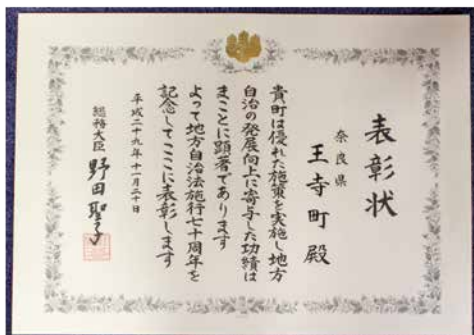 表彰状
奈良県
王寺町殿
貴町は優れた施策を実施し地方
自治の発展向上に寄与した功績は
まことに顕著であります
よって地方自治法施行七十周年を
記念してここに表彰します
平成二十九年十一月二十日
総務大臣 野田聖子